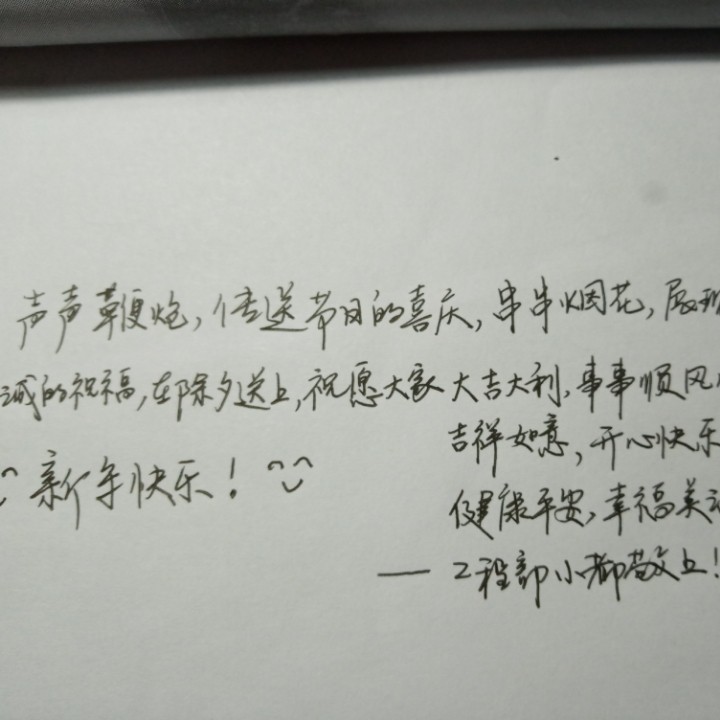 声声鞭炮,传送节日的喜庆,串串烟花,展现
诚的祝福,在除夕送上,祝愿大家大吉大利,事事顺风
吉祥如意,开心快乐
新年快乐!
健康平安,幸福美
——工程部小都敬上!